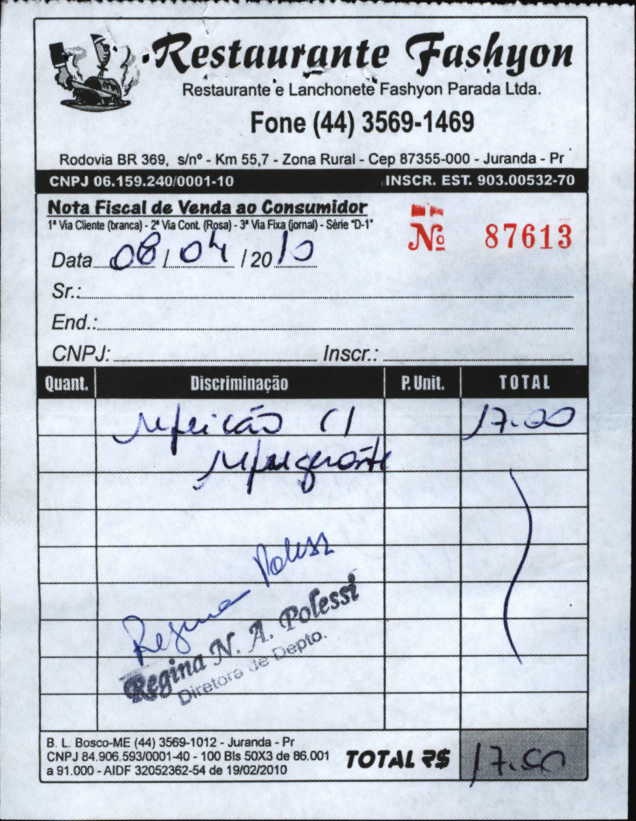 Restaurante Fashyon
Restaurante e Lanchonete Fashyon Parada Ltda.
Fone (44) 3569-1469
Rodovia BR 369, s/nº - Km 55,7 - Zona Rural - Cep 87355-000 - Juranda - Pr
CNPJ 06.159.240/0001-10 INSCR. EST. 903.00532-70
Nota Fiscal de Venda ao Consumidor
1ª Via Cliente (branca) - 2ª Via Cont. (Rosa) - 3ª Via Fixa (jornal) - Série "D-1"
Nº 87613
Data 08/04/2010
Sr.:
End.:
CNPJ: Inscr.:
Quant. Discriminação P.Unit. TOTAL
refeicão c/ 17.00
refrigerante
Regina Polessi
Regina N. A. Polessi
Diretora de Depto.
B. L. Bosco-ME (44) 3569-1012 - Juranda - Pr
CNPJ 84.906.593/0001-40 - 100 Bls 50X3 de 86.001
a 91.000 - AIDF 32052362-54 de 19/02/2010
TOTAL R$ 17.00